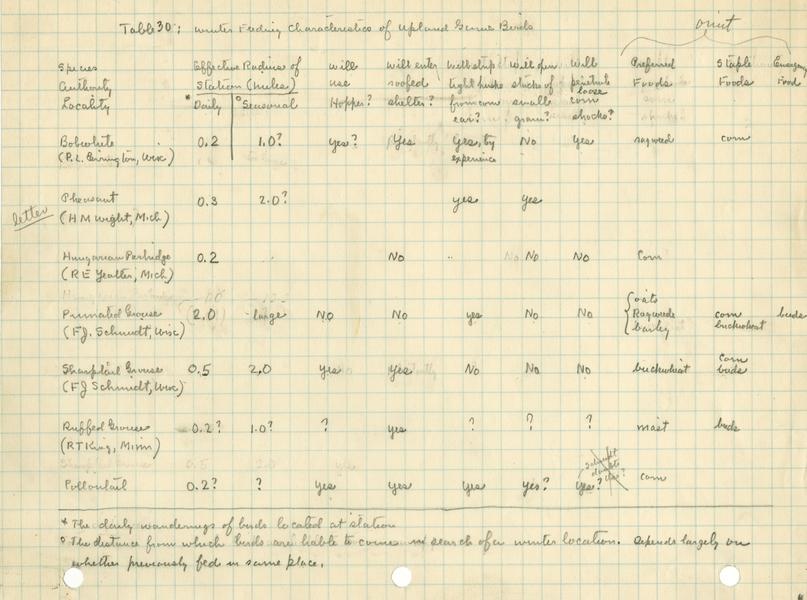 Table 30: Winter Feeding Characteristics of Upland Game Birds
omit
Species Effective Radius of will will enter will strip will open Will Preferred Staple Emergency
Authority Station (miles) use roofed tight husks shucks of penetrate Foods Foods Food
Locality * Daily ° Seasonal Hopper? shelter? from corn small loose corn
ear? grain? shocks?
Bobwhite 0.2 1.0? Yes? Yes Yes, by No Yes ragweed corn
(P.L. Errington, Wisc) experience
Pheasant 0.3 2.0? yes yes
letter (H M Wight, Mich)
Hungarian Partridge 0.2 No No No Corn
(R E Yeatter, Mich)
oats
Pinnated Grouse 2.0 large No No yes No No Ragweed corn buds
(F.J. Schmidt, Wisc) barley buckwheat
Sharptail Grouse 0.5 2.0 Yes Yes No No No buckwheat Corn
(F J Schmidt, Wisc) buds
Ruffed Grouse 0.2? 1.0? ? yes ? ? ? mast buds
(R T King, Minn)
Schmidt doubts this?
Cottontail 0.2? ? yes yes yes yes? yes? corn
* The daily wanderings of birds located at station
° The distance from which birds are liable to come in search of a winter location. Depends largely on
whether previously fed in same place.